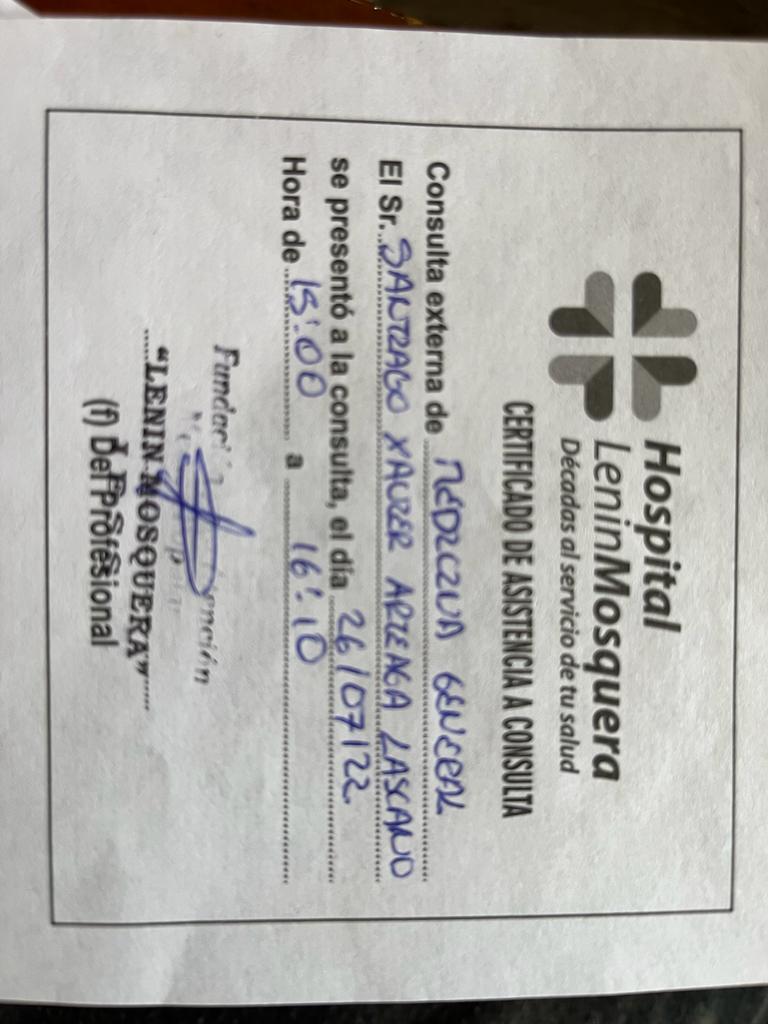 Hospital
LeninMosquera
Décadas al servicio de tu salud
CERTIFICADO DE ASISTENCIA A CONSULTA
Consulta externa de MEDICINA GENERAL
El Sr. SANTIAGO XAVIER ARTEAGA LASCANO
se presentó a la consulta, el día 26/07/22
Hora de 15:00 a 16:10
"LENIN MOSQUERA"
(f) Del Profesional